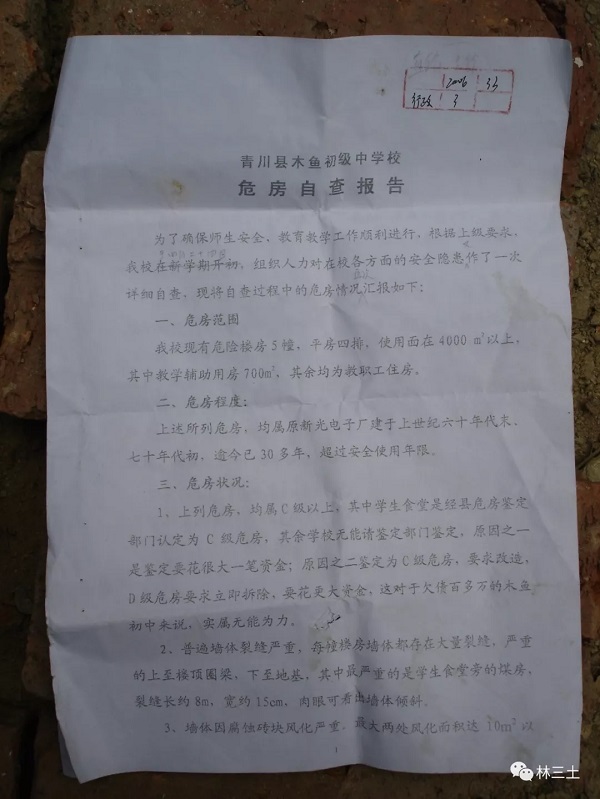 2006
33
行政
3
青川县木鱼初级中学校
危房自查报告
为了确保师生安全、教育教学工作顺利进行，根据上级要求，
我校在新学期开初，组织人力对在校各方面的安全隐患作了一次
详细自查，现将自查过程中的危房情况汇报如下：
一、危房范围
我校现有危险楼房5幢，平房四排，使用面在4000 m²以上，
其中教学辅助用房700m²，其余均为教职工住房。
二、危房程度：
上述所列危房，均属原新光电子厂建于上世纪六十年代末、
七十年代初，逾今已30多年，超过安全使用年限。
三、危房状况：
1、上列危房，均属C级以上，其中学生食堂是经县危房鉴定
部门认定为 C 级危房，其余学校无能请鉴定部门鉴定。原因之一
是鉴定要花很大一笔资金；原因之二鉴定为C级危房，要求改造，
D级危房要求立即拆除，要花更大资金，这对于欠债百多万的木鱼
初中来说，实属无能为力。
2、普遍墙体裂缝严重，每幢楼房墙体都存在大量裂缝，严重
的上至楼顶圈梁，下至地基，其中最严重的是学生食堂旁的煤房，
裂缝长约8m，宽约15cm，肉眼可看出墙体倾斜。
3、墙体因腐蚀砖块风化严重。最大两处风化面积达 10m²以
1
林三土